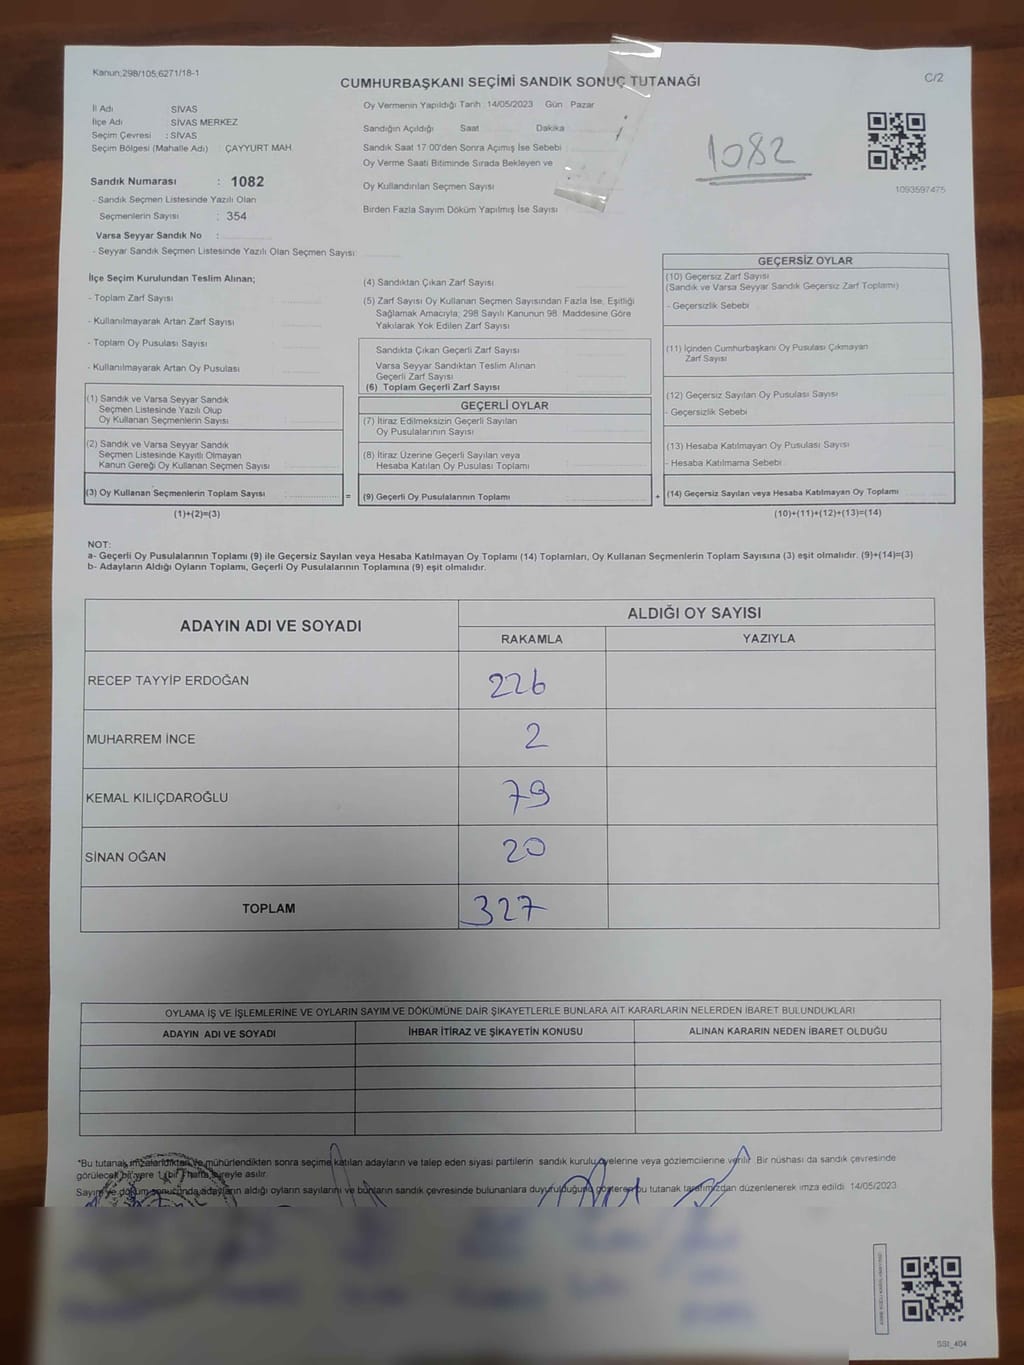 Kanun;298/105;6271/18-1
CUMHURBAŞKANI SEÇİMİ SANDIK SONUÇ TUTANAĞI
C/2
İl Adı SİVAS
İlçe Adı : SİVAS MERKEZ
Seçim Çevresi : SİVAS
Seçim Bölgesi (Mahalle Adı) : ÇAYYURT MAH.
Sandık Numarası : 1082
- Sandık Seçmen Listesinde Yazılı Olan
Seçmenlerin Sayısı : 354
Varsa Seyyar Sandık No :
- Seyyar Sandık Seçmen Listesinde Yazılı Olan Seçmen Sayısı:
Oy Vermenin Yapıldığı Tarih :14/05/2023 Gün Pazar
Sandığın Açıldığı Saat Dakika
Sandık Saat 17:00'den Sonra Açımış İse Sebebi
Oy Verme Saati Bitiminde Sırada Bekleyen ve
Oy Kullandırılan Seçmen Sayısı
Birden Fazla Sayım Döküm Yapılmış İse Sayısı
1082
1093597475
İlçe Seçim Kurulundan Teslim Alınan;
- Toplam Zarf Sayısı
- Kullanılmayarak Artan Zarf Sayısı
- Toplam Oy Pusulası Sayısı
- Kullanılmayarak Artan Oy Pusulası
(1) Sandık ve Varsa Seyyar Sandık
Seçmen Listesinde Yazılı Olup
Oy Kullanan Seçmenlerin Sayısı
(2) Sandık ve Varsa Seyyar Sandık
Seçmen Listesinde Kayıtlı Olmayan
Kanun Gereği Oy Kullanan Seçmen Sayısı
(3) Oy Kullanan Seçmenlerin Toplam Sayısı =
(1)+(2)=(3)
(4) Sandıktan Çıkan Zarf Sayısı
(5) Zarf Sayısı Oy Kullanan Seçmen Sayısından Fazla İse, Eşitliği
Sağlamak Amacıyla; 298 Sayılı Kanunun 98. Maddesine Göre
Yakılarak Yok Edilen Zarf Sayısı
Sandıkta Çıkan Geçerli Zarf Sayısı
Varsa Seyyar Sandıktan Teslim Alınan
Geçerli Zarf Sayısı
(6) Toplam Geçerli Zarf Sayısı
GEÇERLİ OYLAR
(7) İtiraz Edilmeksizin Geçerli Sayılan
Oy Pusulalarının Sayısı
(8) İtiraz Üzerine Geçerli Sayılan veya
Hesaba Katılan Oy Pusulası Toplamı
(9) Geçerli Oy Pusulalarının Toplamı +
GEÇERSİZ OYLAR
(10) Geçersiz Zarf Sayısı
(Sandık ve Varsa Seyyar Sandık Geçersiz Zarf Toplamı)
- Geçersizlik Sebebi
(11) İçinden Cumhurbaşkanı Oy Pusulası Çıkmayan
Zarf Sayısı
(12) Geçersiz Sayılan Oy Pusulası Sayısı
- Geçersizlik Sebebi
(13) Hesaba Katılmayan Oy Pusulası Sayısı
- Hesaba Katılmama Sebebi
(14) Geçersiz Sayılan veya Hesaba Katılmayan Oy Toplamı
(10)+(11)+(12)+(13)=(14)
NOT:
a- Geçerli Oy Pusulalarının Toplamı (9) ile Geçersiz Sayılan veya Hesaba Katılmayan Oy Toplamı (14) Toplamları, Oy Kullanan Seçmenlerin Toplam Sayısına (3) eşit olmalıdır. (9)+(14)=(3)
b- Adayların Aldığı Oyların Toplamı, Geçerli Oy Pusulalarının Toplamına (9) eşit olmalıdır.
ADAYIN ADI VE SOYADI ALDIĞI OY SAYISI
RAKAMLA YAZIYLA
RECEP TAYYİP ERDOĞAN 226
MUHARREM İNCE 2
KEMAL KILIÇDAROĞLU 79
SİNAN OĞAN 20
TOPLAM 327
OYLAMA İŞ VE İŞLEMLERİNE VE OYLARIN SAYIM VE DÖKÜMÜNE DAİR ŞİKAYETLERLE BUNLARA AİT KARARLARIN NELERDEN İBARET BULUNDUKLARI
ADAYIN ADI VE SOYADI İHBAR İTİRAZ VE ŞİKAYETİN KONUSU ALINAN KARARIN NEDEN İBARET OLDUĞU
*Bu tutanak imzalandıktan ve mühürlendikten sonra seçime katılan adayların ve talep eden siyasi partilerin sandık kurulu üyelerine veya gözlemcilerine verilir. Bir nüshası da sandık çevresinde
görülecek bir yere 1 (bir) hafta süreyle asılır.
Sayım ve döküm sonucunda adayların aldığı oyların sayılarını ve bunların sandık çevresinde bulunanlara duyurulduğunu gösteren bu tutanak tarafımızdan düzenlenerek imza edildi. 14/05/2023
SSI_404